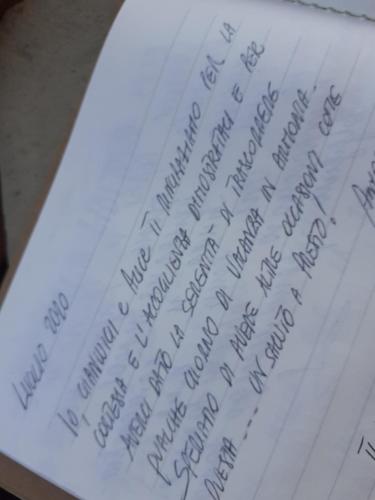 LUGLIO 2020
IO, GIANLUIGI E ALICE TI RINGRAZIAMO PER LA
CORTESIA E L'ACCOGLIENZA DIMOSTRATACI E PER
AVERCI DATO LA SERENITÀ DI TRASCORRERE
QUALCHE GIORNO DI VACANZA IN ARMONIA.
SPERIAMO DI AVERE ALTRE OCCASIONI COME
QUESTA... UN SALUTO A PRESTO!